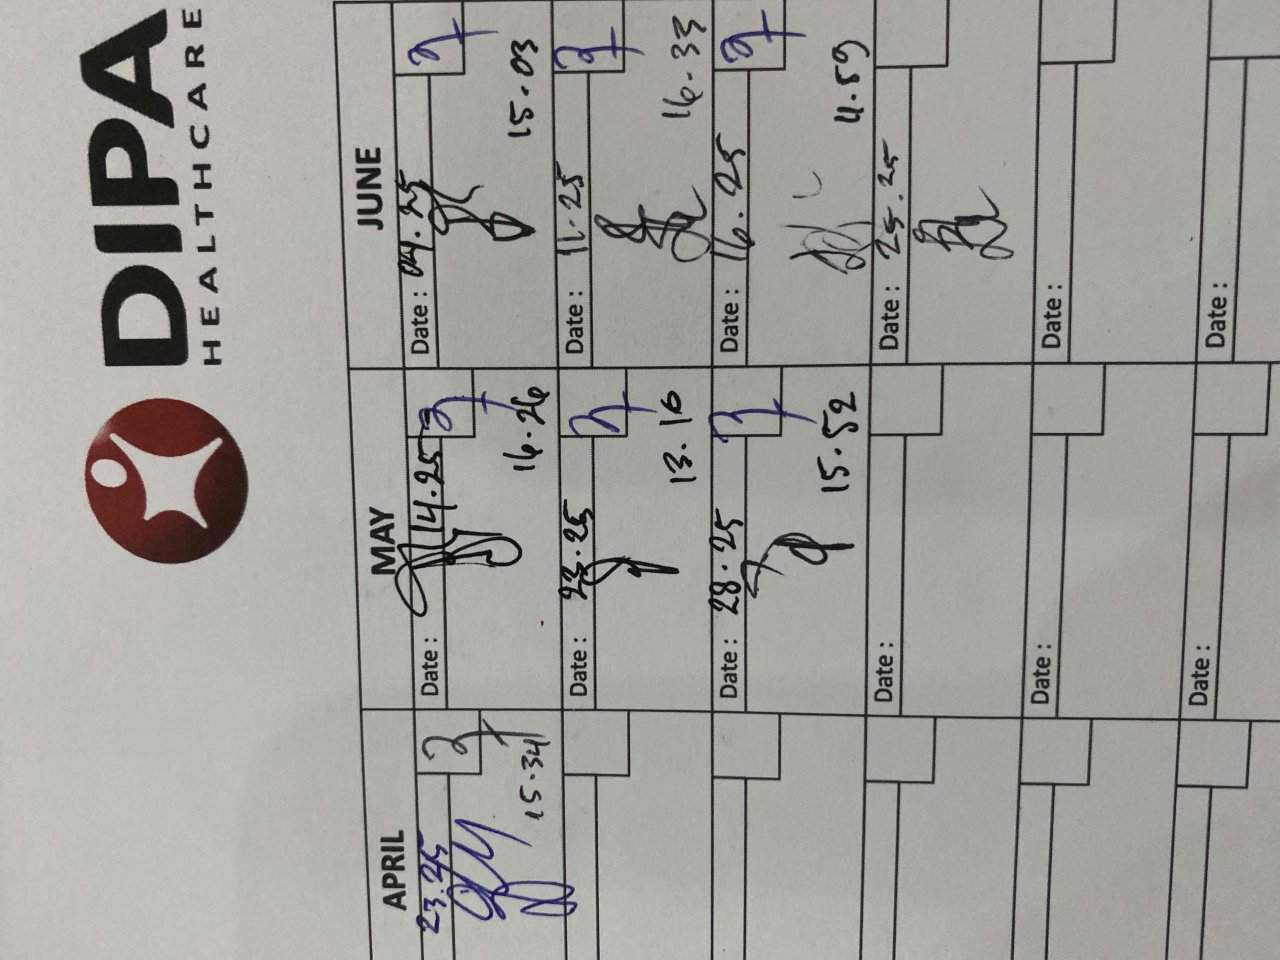 DIPA
HEALTHCARE
APRIL MAY JUNE
23.25 Date: 14.25 Date: 04.25
15.34 16.26 15.03
Date: 23.25 Date: 11.25
13.16 16.33
Date: 28.25 Date: 16.25
15.52 11.59
Date: Date: 25.25
Date: Date:
Date: Date: